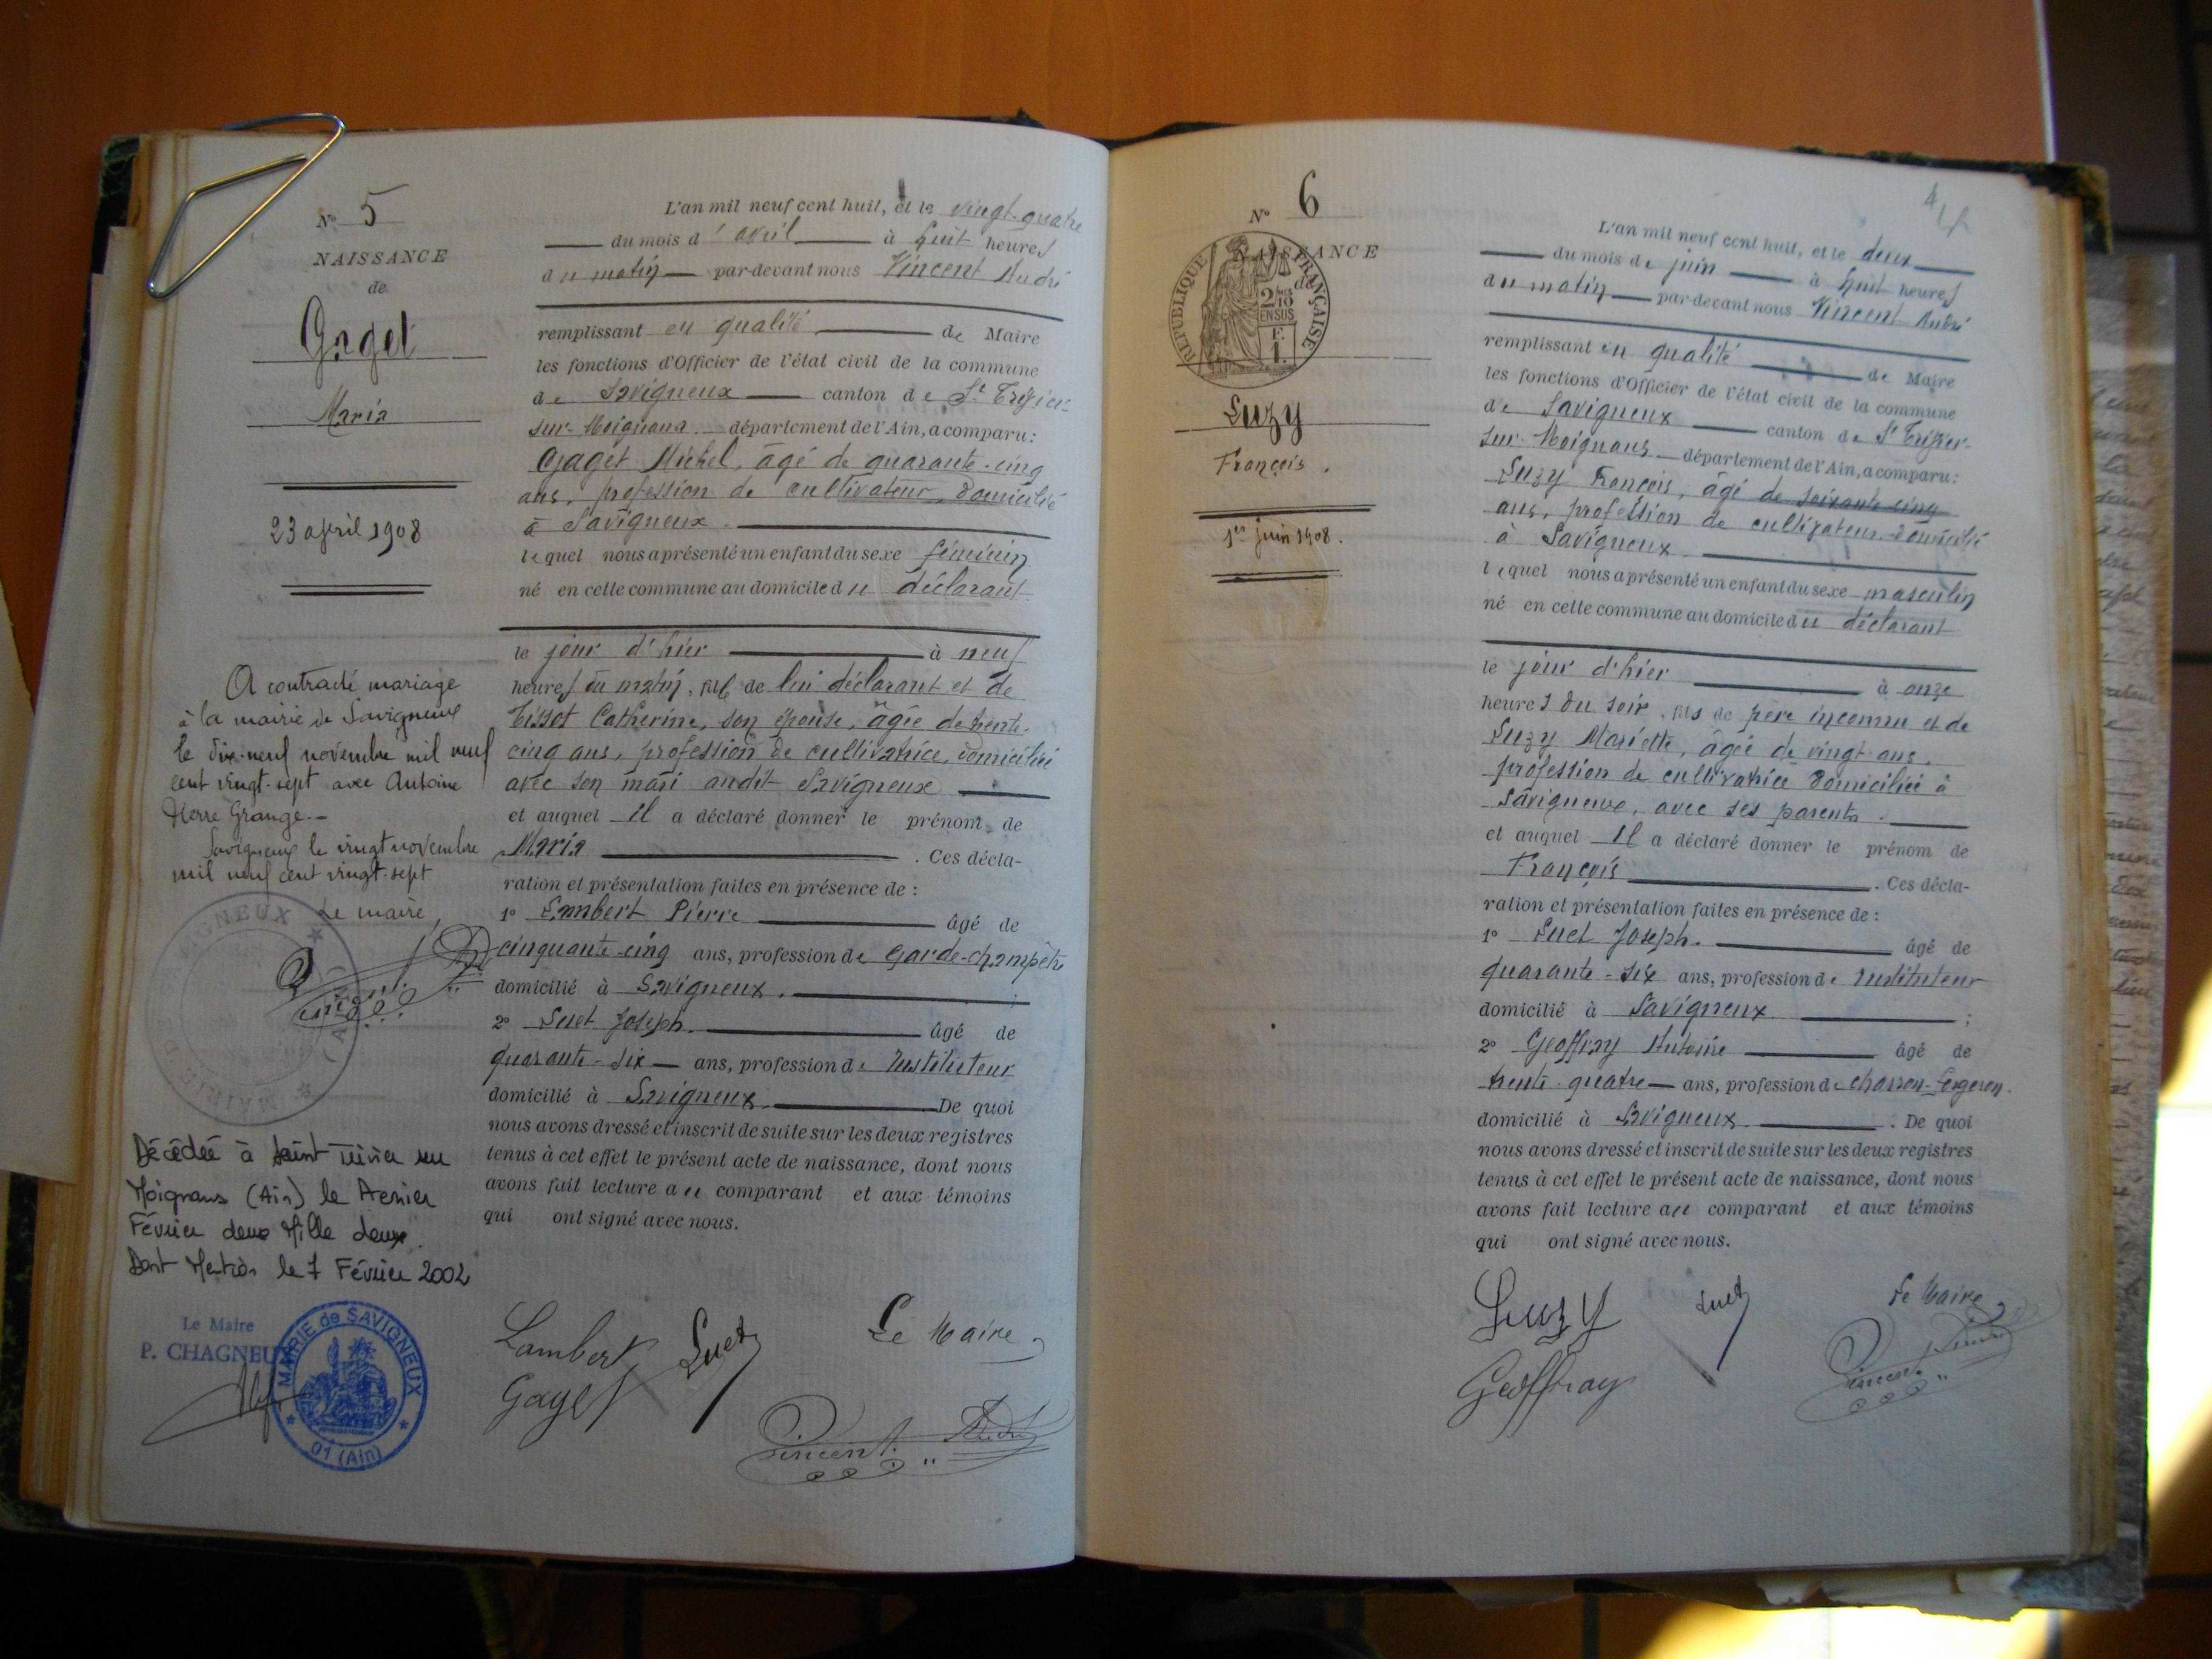 N° 5
NAISSANCE
de
Gaget
Maria
23 april 1908
A contracté mariage
à la mairie de Savigneux
le dix-neuf novembre mil neuf
cent vingt-sept avec Antoine
Pierre Grange.-
Savigneux le vingt novembre
mil neuf cent vingt-sept
Le maire,
Vincent
Décédée à Saint Trivier sur
Moignans (Ain) le Premier
Février deux Mille deux.
Dont Mention le 7 Février 2002
Le Maire
P. CHAGNEUX
MAIRIE de SAVIGNEUX
01 (Ain)
L'an mil neuf cent huit, et le vingt-quatre
du mois d'avril à huit heures
du matin par-devant nous Vincent André
remplissant en qualité de Maire
les fonctions d'Officier de l'état civil de la commune
de Savigneux canton de St Trivier-
sur-Moignans département de l'Ain, a comparu:
Gaget Michel, âgé de quarante-cinq
ans, profession de cultivateur, domicilié
à Savigneux.
lequel nous a présenté un enfant du sexe féminin
né en cette commune au domicile du déclarant
le jour d'hier à neuf
heures du matin, fille de lui déclarant et de
Tissot Catherine, son épouse, âgée de trente-
cinq ans, profession de cultivatrice, domiciliée
avec son mari audit Savigneux
et auquel il a déclaré donner le prénom de
Maria . Ces décla-
ration et présentation faites en présence de :
1° Lambert Pierre âgé de
cinquante-cinq ans, profession de Garde-champêtre
domicilié à Savigneux. ;
2° Luet Joseph. âgé de
quarante-six ans, profession de Instituteur
domicilié à Savigneux. De quoi
nous avons dressé et inscrit de suite sur les deux registres
tenus à cet effet le présent acte de naissance, dont nous
avons fait lecture au comparant et aux témoins
qui ont signé avec nous.
Lambert Luet Le Maire
Gaget
Vincent André
N° 6
NAISSANCE
de
RÉPUBLIQUE FRANÇAISE
2/10
EN SUS
F.
1.
Luzy
François.
1er juin 1908.
L'an mil neuf cent huit, et le deux
du mois de juin à huit heures
du matin par-devant nous Vincent André
remplissant en qualité de Maire
les fonctions d'Officier de l'état civil de la commune
de Savigneux canton de St Trivier-
sur-Moignans département de l'Ain, a comparu:
Luzy François, âgé de soixante-cinq
ans, profession de cultivateur, domicilié
à Savigneux
lequel nous a présenté un enfant du sexe masculin
né en cette commune au domicile du déclarant
le jour d'hier à onze
heures du soir, fils de père inconnu et de
Luzy Mariette, âgée de vingt ans,
profession de cultivatrice domiciliée à
Savigneux, avec ses parents.
et auquel il a déclaré donner le prénom de
François . Ces décla-
ration et présentation faites en présence de :
1° Luet Joseph. âgé de
quarante-six ans, profession de Instituteur
domicilié à Savigneux. ;
2° Geoffray Antoine âgé de
trente-quatre ans, profession de charron-forgeron.
domicilié à Savigneux. . De quoi
nous avons dressé et inscrit de suite sur les deux registres
tenus à cet effet le présent acte de naissance, dont nous
avons fait lecture au comparant et aux témoins
qui ont signé avec nous.
Luzy Luet Le Maire
Geoffray Vincent André